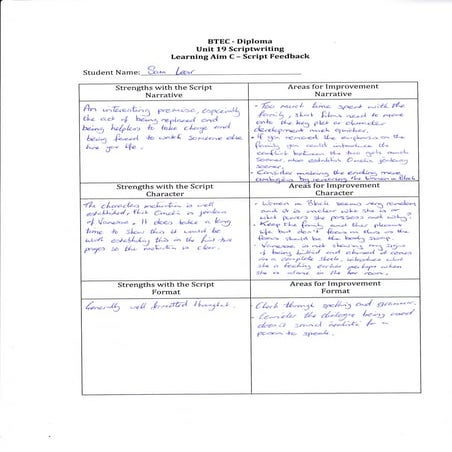 BTEC - Diploma
Unit 19 Scriptwriting
Learning Aim C – Script Feedback
Student Name: Sam
Strengths with the Script
Narrative
An interesting premise, especially
the act of being replaced and
being helpless to take charge and
being forced to watch someone else
live your life.
Areas for Improvement
Narrative
- Too much time spent with the
family, short films need to move
onto the key plot or character
development much quicker.
- If you removed the emphasis on the
family you could introduce the
conflict between the two girls much
sooner, also establish jealousy
sooner.
- Consider making the ending more
ambiguous by removing the Woman in Black
Strengths with the Script
Character
The characters motivation is well
established, that is jealous
of Vanessa. It does take a long
time to show this it would be
worth establishing this in the first two
pages so the motivation is clear.
Areas for Improvement
Character
- Woman in Black seems very random
and it is unclear who she is or
what powers she possess and why?
- Keep the family and their
life but don't focus on this as the
focus should be the body swap.
- Vanessa is not showing any signs
of being bullied and abused it comes
as a complete shock, introduce what
she is feeling earlier perhaps when
she is alone in the her room.
Strengths with the Script
Format
Generally well formatted throughout.
Areas for Improvement
Format
- Check through spelling and grammar.
- Consider the dialogue being used
does it sound realistic for a
person to speak.